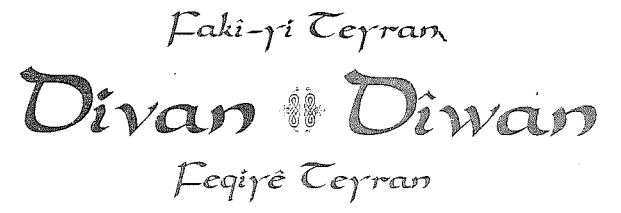 Fakî-yi Teyran
Divan Dîwan
Feqiyê Teyran